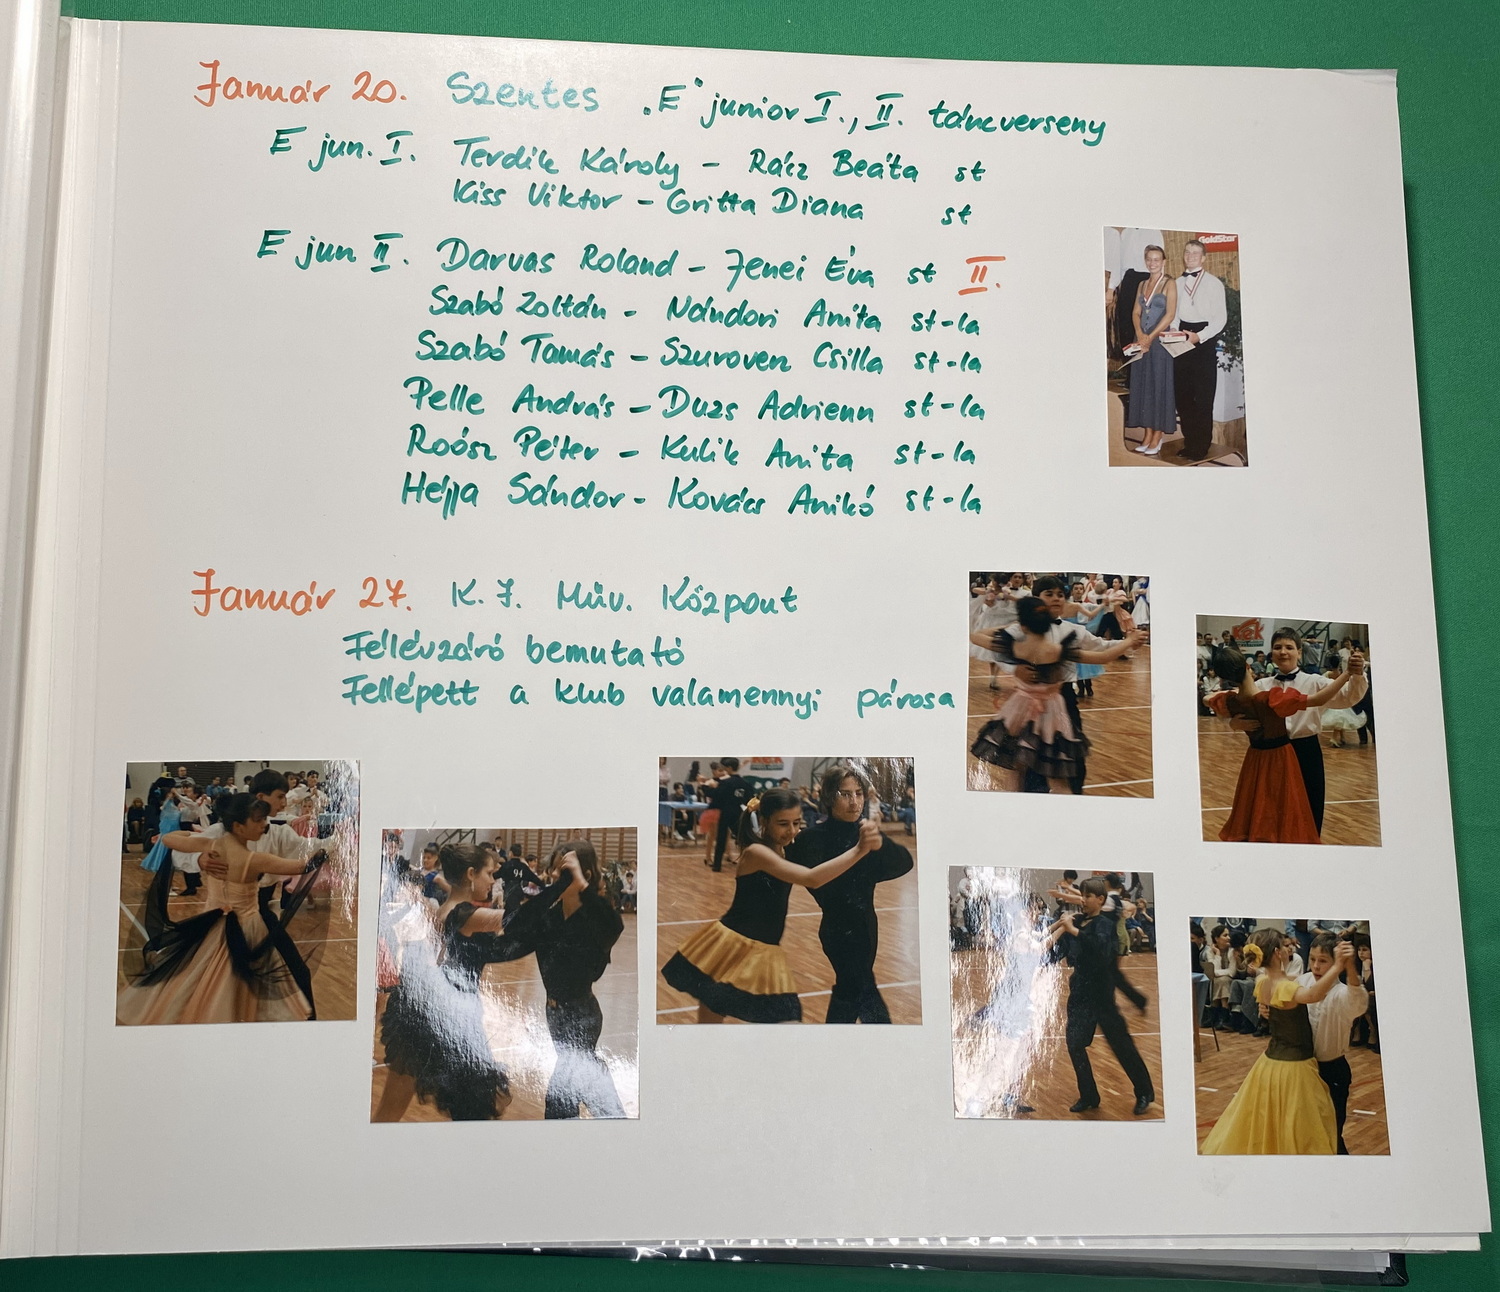 Január 20. Szentes „E" junior I., II. táncverseny
E jun. I. Terdik Károly - Rácz Beáta st
Kiss Viktor - Gritta Diana st
E jun II. Darvas Roland - Jenei Éva st II.
Szabó Zoltán - Nándori Anita st-la
Szabó Tamás - Szuroven Csilla st-la
Pelle András - Duzs Adrienn st-la
Roósz Péter - Kulik Anita st-la
Hejja Sándor - Kovács Anikó st-la
Január 27. K. J. Műv. Központ
Félévzáró bemutató
Fellépett a klub valamennyi párosa
94